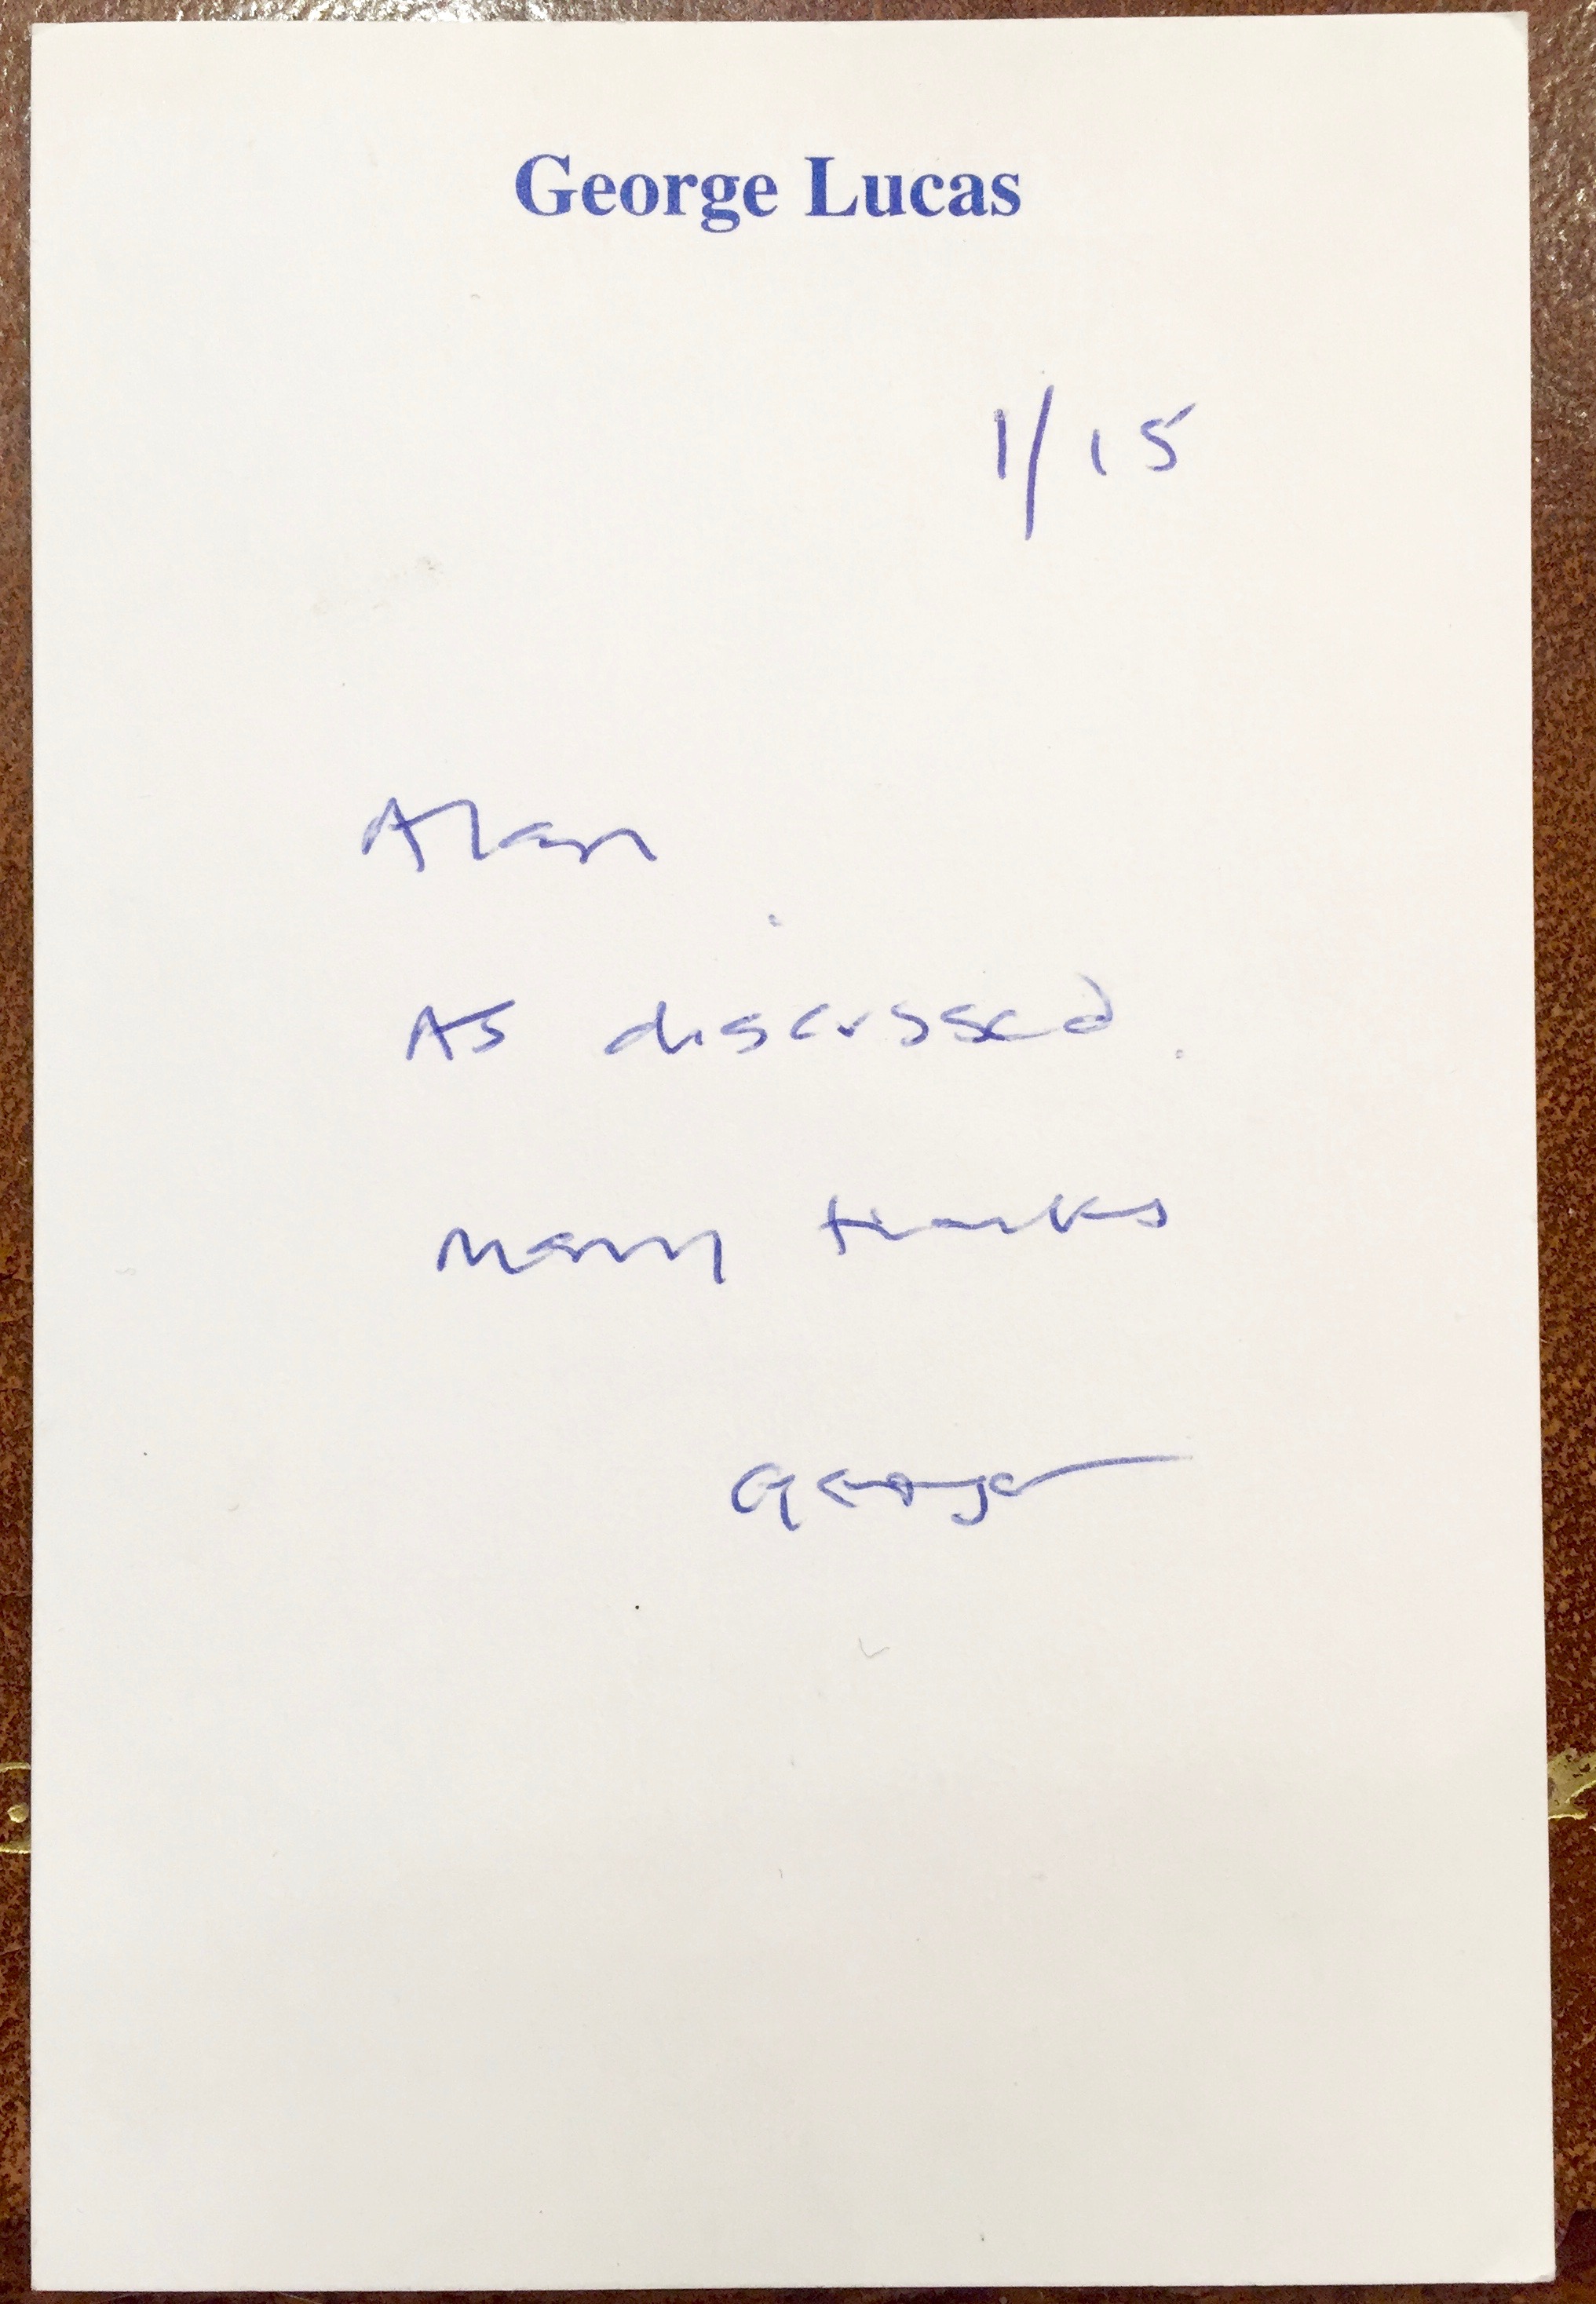 George Lucas
1/15
Alan
As discussed.
Many thanks
George